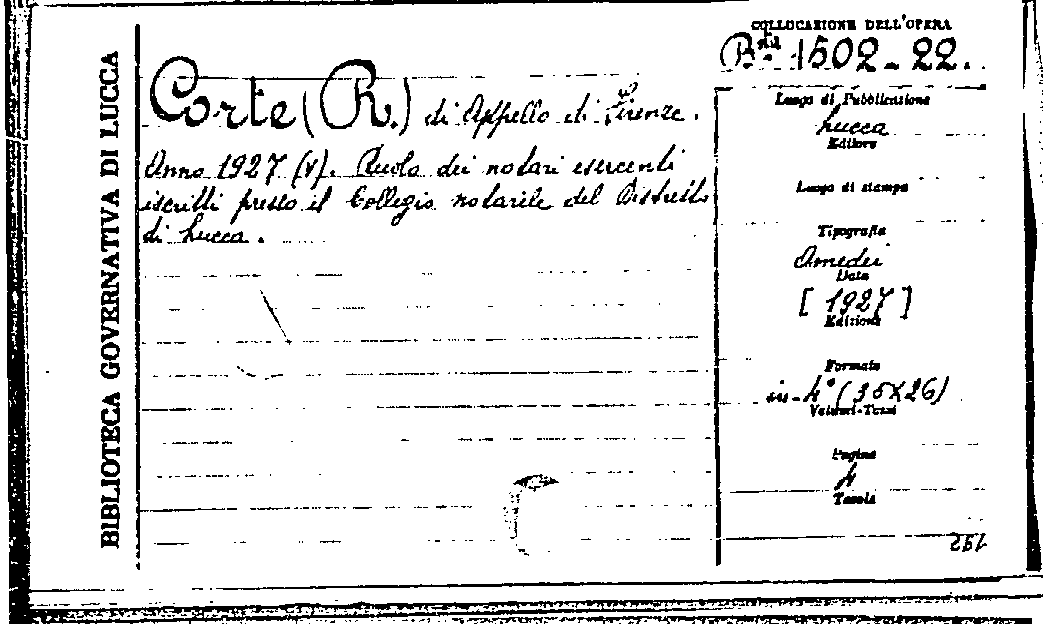 BIBLIOTECA GOVERNATIVA DI LUCCA
Corte (R.) di Appello di Firenze.
Anno 1927 (V). Ruolo dei notari esercenti
iscritti presso il Collegio notarile del Distretto
di Lucca.
COLLOCAZIONE DELL'OPERA
B.ta 1502-22.
Luogo di Pubblicazione
Lucca
Editore
Luogo di stampa
Tipografia
Amedei
Data
[1927]
Edizione
Formato
in-4° (35X26)
Volumi-Tomi
Pagine
4
Tavole